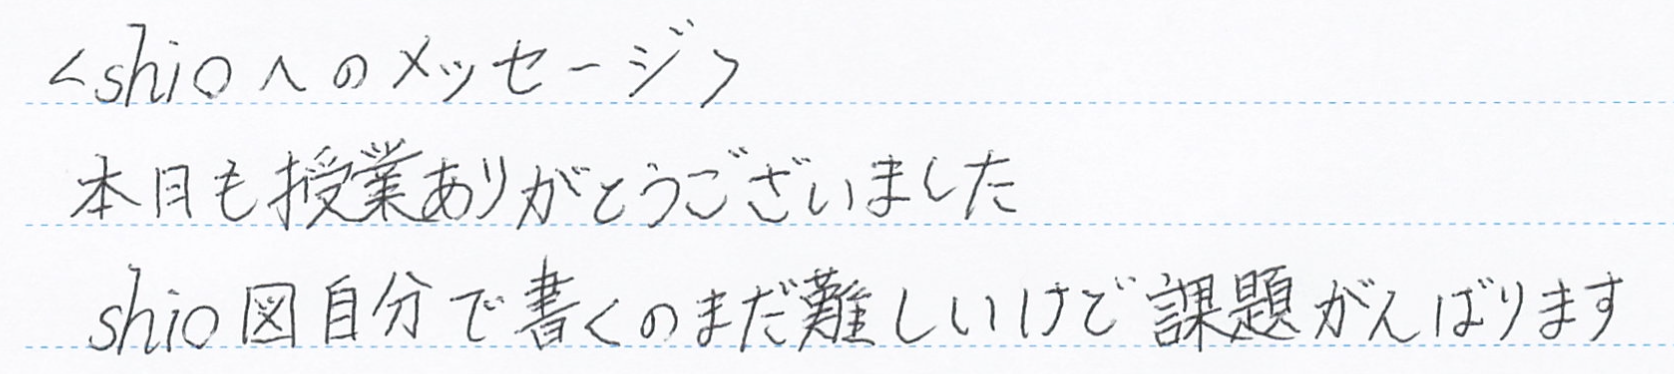 <shioへのメッセージ>
本日も授業ありがとうございました
shio図自分で書くのまだ難しいけど課題がんばります